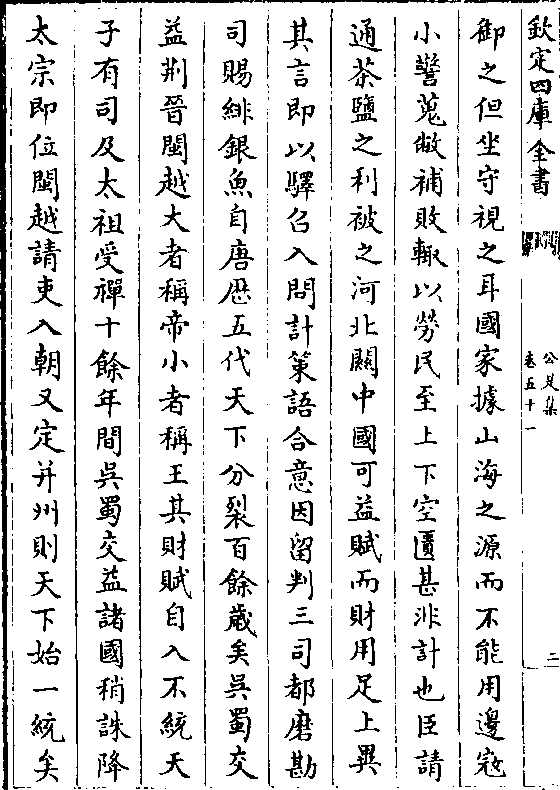 欽定四庫全書
公是集
卷五十一
二
御之但坐守視之耳國家據山海之源而不能用邊宼
小警蒐敝補敗輙以勞民至上下空匱甚非計也臣請
通茶鹽之利被之河北關中國可益賦而財用足上異
其言即以驛召入問計策語合意因留判三司都磨勘
司賜緋銀魚自唐厯五代天下分裂百餘歳矣吳蜀交
益荆晉閩越大者稱帝小者稱王其財賦自入不統天
子有司及太祖受禪十餘年間吳蜀交益諸國稍誅降
太宗即位閩越請吏入朝又定并州則天下始一統矣